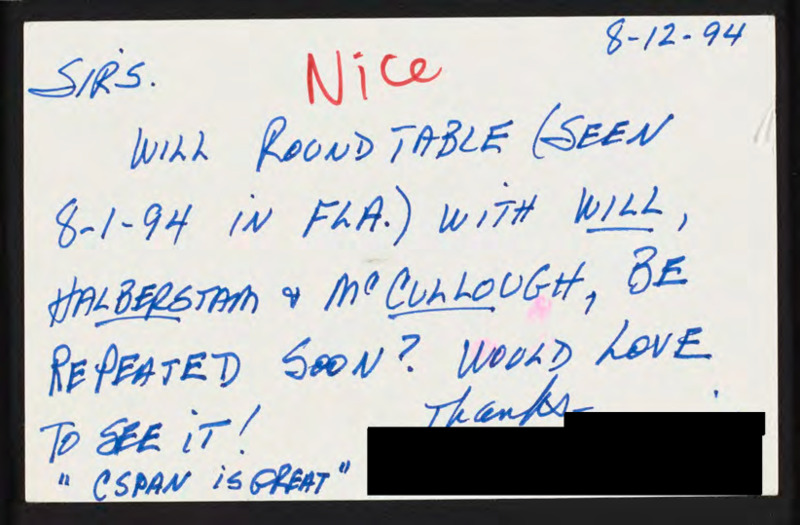 8-12-94
SIRS. Nice
WILL ROUNDTABLE (SEEN
8-1-94 IN FLA.) WITH WILL,
HALBERSTAM & McCULLOUGH, BE
REPEATED SOON? WOULD LOVE
TO SEE IT! Thanks-
"CSPAN IS GREAT"